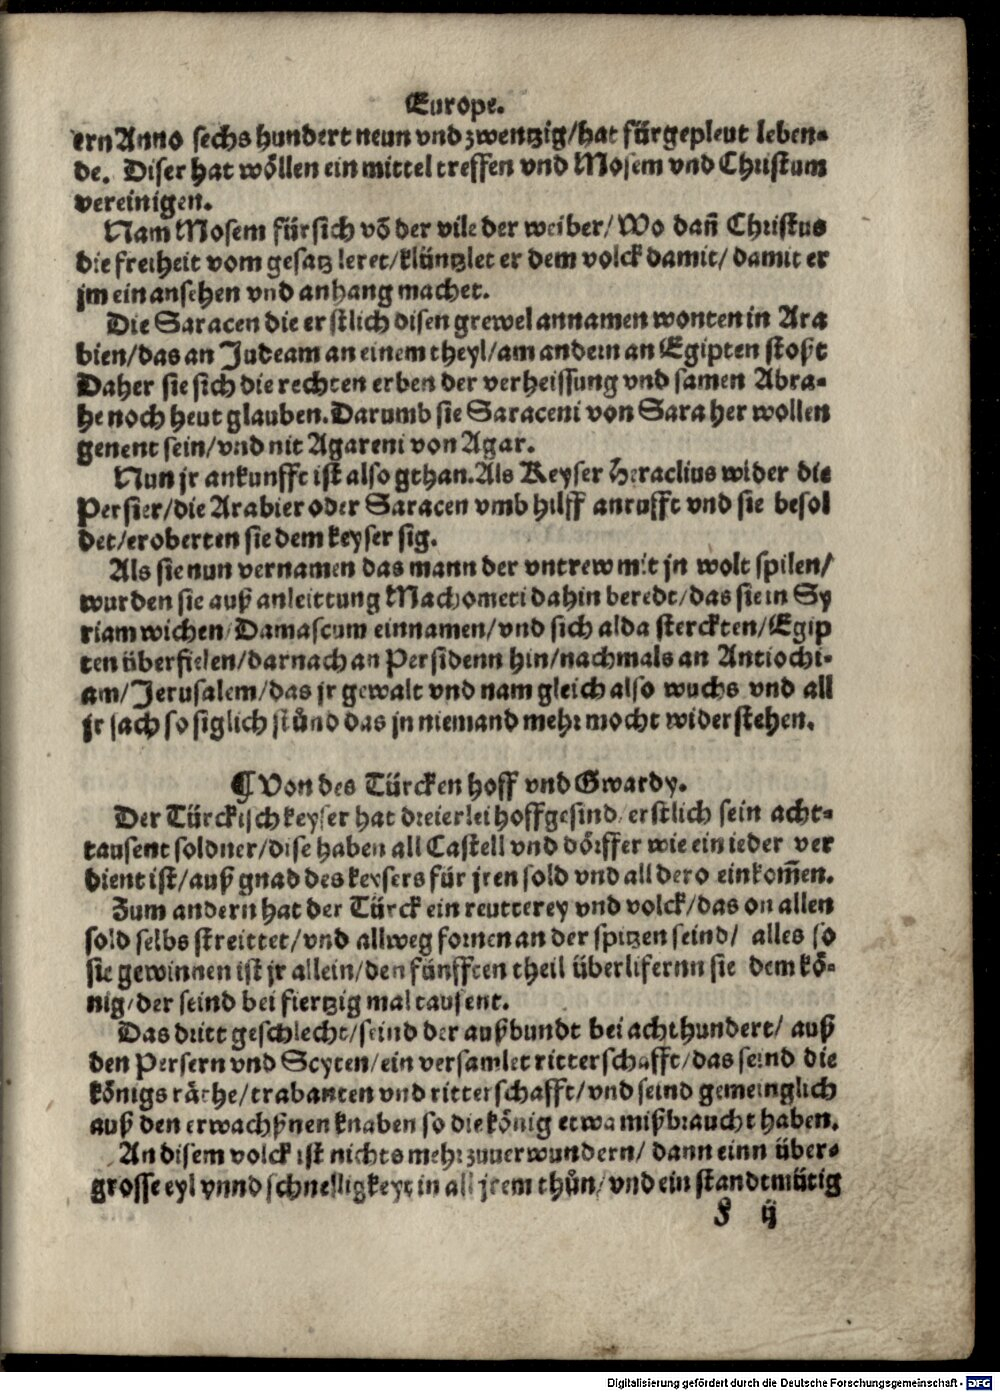 Europe.
ern Anno sechs hundert neun vnd zwentzig/hat fürgepleut leben-
de. Diser hat wöllen ein mittel treffen vnd Mosem vnd Christum
vereinigen.
Nam Mosem für sich võ der vile der weiber/Wo dañ Christus
die freiheit vom gesatz leret/klüntzlet er dem volck damit/damit er
jm ein ansehen vnd anhang machet.
Die Saracen die erstlich disen grewel annamen wonten in Ara
bien/das an Judeam an einem theyl/am andern an Egipten stoßt
Daher sie sich die rechten erben der verheissung vnd samen Abra-
he noch heut glauben. Darumb sie Saraceni von Sara her wollen
genent sein/vnd nit Agareni von Agar.
Nun jr ankunfft ist also gthan. Als Keyser Heraclius wider die
Persier/die Arabier oder Saracen vmb hilff anrufft vnd sie besol
det/eroberten sie dem keyser sig.
Als sie nun vernamen das mann der vntrew mit jn wolt spilen/
wurden sie auß anleittung Machometi dahin beredt/das sie in Sy
riam wichen/Damascum einnamen/vnd sich alda sterckten/Egip
ten überfielen/darnach an Persidenn hin/nachmals an Antiochi-
am/Jerusalem/das jr gewalt vnd nam gleich also wuchs vnd all
jr sach so siglich stůnd das jn niemand mehr mocht widerstehen.
¶ Von des Türcken hoff vnd Gwardy.
Der Türckisch keyser hat dreierlei hoffgesind/erstlich sein acht-
tausent soldner/dise haben all Castell vnd dörffer wie ein ieder ver
dient ist/auß gnad des keysers für jren sold vnd all dero einkom̃en.
Zum andern hat der Türck ein reutterey vnd volck/das on allen
sold selbs streittet/vnd allweg fornen an der spitzen seind/ alles so
sie gewinnen ist jr allein/den fünfften theil überlifernn sie dem kö-
nig/der seind bei fiertzig mal tausent.
Das dritt geschlecht/seind der außbundt bei achthundert/ auß
den Persern vnd Scyten/ein versamlet ritterschafft/das seind die
königs räthe/trabanten vnd ritterschafft/vnd seind gemeinglich
auß den erwachßnen knaben so die könig etwa mißbraucht haben.
An disem volck ist nichts mehr zuuerwundern/ dann einn über-
grosse eyl vnnd schnelligkeyt in all jrem thůn/vnd ein standtmütig
F ij
Digitalisierung gefördert durch die Deutsche Forschungsgemeinschaft - DFG